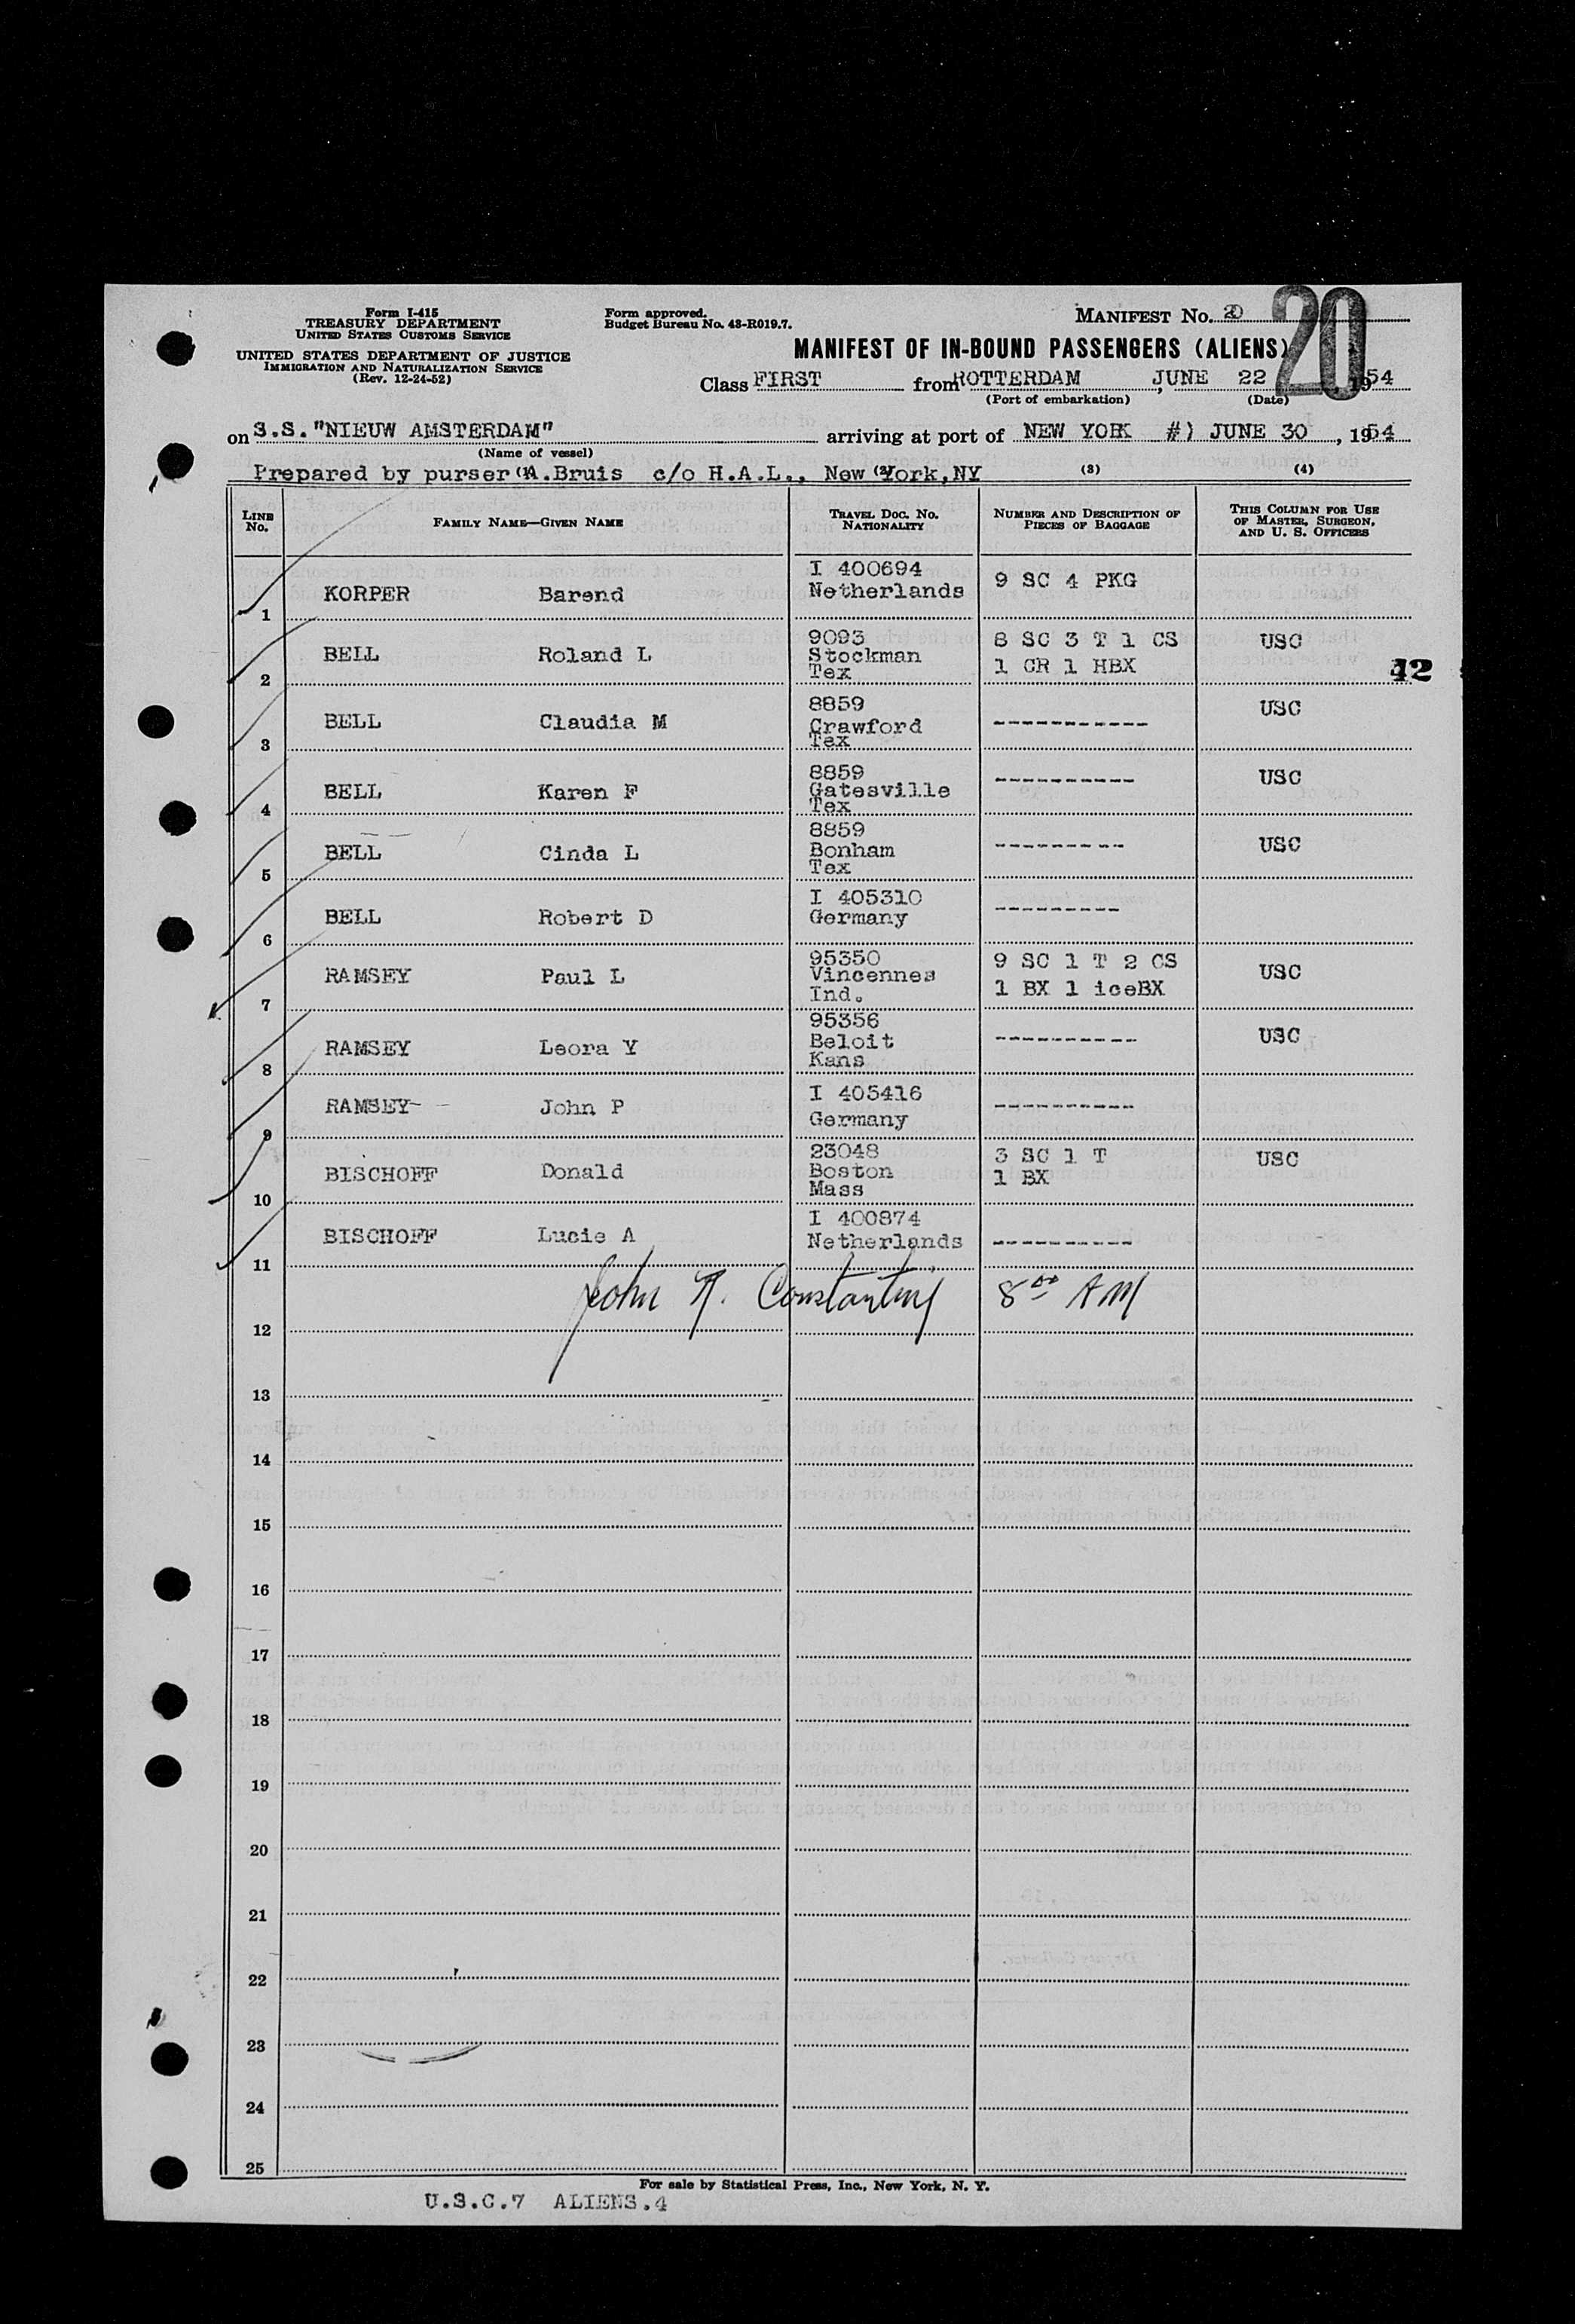 Form I-415
TREASURY DEPARTMENT
UNITED STATES CUSTOMS SERVICE
UNITED STATES DEPARTMENT OF JUSTICE
IMMIGRATION AND NATURALIZATION SERVICE
(Rev. 12-24-52)
Form approved.
Budget Bureau No. 43-R019.7.
MANIFEST No. 20
20
MANIFEST OF IN-BOUND PASSENGERS (ALIENS)
Class FIRST from ROTTERDAM , JUNE 22 , 1954
(Port of embarkation) (Date)
on S.S. "NIEUW AMSTERDAM" arriving at port of NEW YORK #) JUNE 30 , 1954
(Name of vessel)
Prepared by purser (1) A.Bruis c/o H.A.L., New (2) York,NY (3) (4)
LINE No. FAMILY NAME—GIVEN NAME TRAVEL DOC. NO. NATIONALITY NUMBER AND DESCRIPTION OF PIECES OF BAGGAGE THIS COLUMN FOR USE OF MASTER, SURGEON, AND U. S. OFFICERS
1 KORPER Barend I 400694 Netherlands 9 SC 4 PKG
2 BELL Roland L 9093 Stockman Tex 8 SC 3 T 1 CS 1 CR 1 HBX USC
42
3 BELL Claudia M 8859 Crawford Tex ------------ USC
4 BELL Karen F 8859 Gatesville Tex ----------- USC
5 BELL Cinda L 8859 Bonham Tex ---------- USC
6 BELL Robert D I 405310 Germany ----------
7 RAMSEY Paul L 95350 Vincennes Ind. 9 SC 1 T 2 CS 1 BX 1 iceBX USC
8 RAMSEY Leora Y 95356 Beloit Kans ----------- USC
9 RAMSEY John P I 405416 Germany -----------
10 BISCHOFF Donald 23048 Boston Mass 3 SC 1 T 1 BX USC
11 BISCHOFF Lucie A I 400874 Netherlands -----------
John 8 00 AM
12
13
14
15
16
17
18
19
20
21
22
23
24
25
For sale by Statistical Press, Inc., New York, N. Y.
U.S.C.7 ALIENS.4